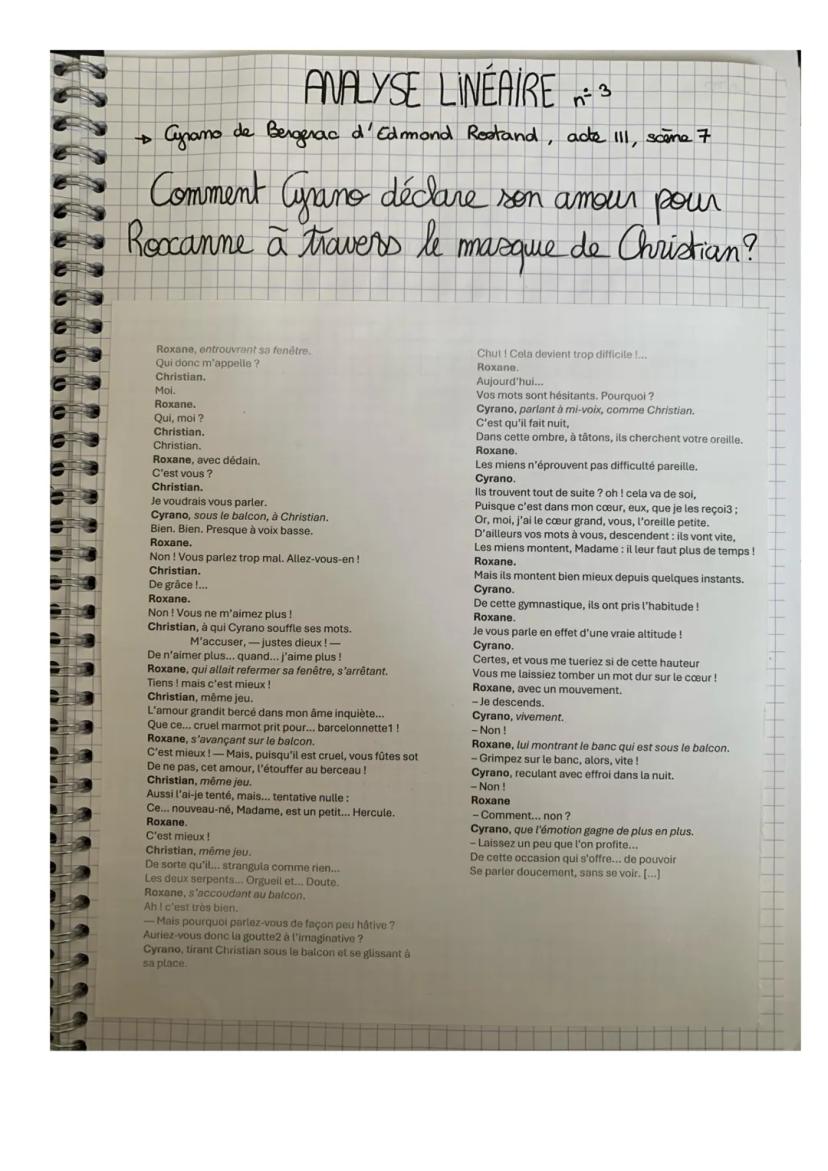 ANALYSE LINÉAIRE n° 3
→ Cyrano de Bergerac d'Edmond Rostand, acte III, scène 7
Comment Cyrano déclare son amour pour
Roxanne à travers le masque de Christian?
Roxane, entrouvrant sa fenêtre.
Qui donc m'appelle ?
Christian.
Moi.
Roxane.
Qui, moi ?
Christian.
Christian.
Roxane, avec dédain.
C'est vous ?
Christian.
Je voudrais vous parler.
Cyrano, sous le balcon, à Christian.
Bien. Bien. Presque à voix basse.
Roxane.
Non ! Vous parlez trop mal. Allez-vous-en !
Christian.
De grâce !...
Roxane.
Non ! Vous ne m'aimez plus !
Christian, à qui Cyrano souffle ses mots.
M'accuser, — justes dieux ! —
De n'aimer plus... quand... j'aime plus !
Roxane, qui allait refermer sa fenêtre, s'arrêtant.
Tiens ! mais c'est mieux !
Christian, même jeu.
L'amour grandit bercé dans mon âme inquiète...
Que ce... cruel marmot prit pour... barcelonnette1 !
Roxane, s'avançant sur le balcon.
C'est mieux ! — Mais, puisqu'il est cruel, vous fûtes sot
De ne pas, cet amour, l'étouffer au berceau !
Christian, même jeu.
Aussi l'ai-je tenté, mais... tentative nulle :
Ce... nouveau-né, Madame, est un petit... Hercule.
Roxane.
C'est mieux !
Christian, même jeu.
De sorte qu'il... strangula comme rien...
Les deux serpents... Orgueil et... Doute.
Roxane, s'accoudant au balcon.
Ah ! c'est très bien.
— Mais pourquoi parlez-vous de façon peu hâtive ?
Auriez-vous donc la goutte2 à l'imaginative ?
Cyrano, tirant Christian sous le balcon et se glissant à
sa place.
Chut ! Cela devient trop difficile !...
Roxane.
Aujourd'hui...
Vos mots sont hésitants. Pourquoi ?
Cyrano, parlant à mi-voix, comme Christian.
C'est qu'il fait nuit,
Dans cette ombre, à tâtons, ils cherchent votre oreille.
Roxane.
Les miens n'éprouvent pas difficulté pareille.
Cyrano.
Ils trouvent tout de suite ? oh ! cela va de soi,
Puisque c'est dans mon cœur, eux, que je les reçoi3 ;
Or, moi, j'ai le cœur grand, vous, l'oreille petite.
D'ailleurs vos mots à vous, descendent : ils vont vite,
Les miens montent, Madame : il leur faut plus de temps !
Roxane.
Mais ils montent bien mieux depuis quelques instants.
Cyrano.
De cette gymnastique, ils ont pris l'habitude !
Roxane.
Je vous parle en effet d'une vraie altitude !
Cyrano.
Certes, et vous me tueriez si de cette hauteur
Vous me laissiez tomber un mot dur sur le cœur !
Roxane, avec un mouvement.
– Je descends.
Cyrano, vivement.
– Non !
Roxane, lui montrant le banc qui est sous le balcon.
– Grimpez sur le banc, alors, vite !
Cyrano, reculant avec effroi dans la nuit.
– Non !
Roxane
– Comment... non ?
Cyrano, que l'émotion gagne de plus en plus.
– Laissez un peu que l'on profite...
De cette occasion qui s'offre... de pouvoir
Se parler doucement, sans se voir. [...]